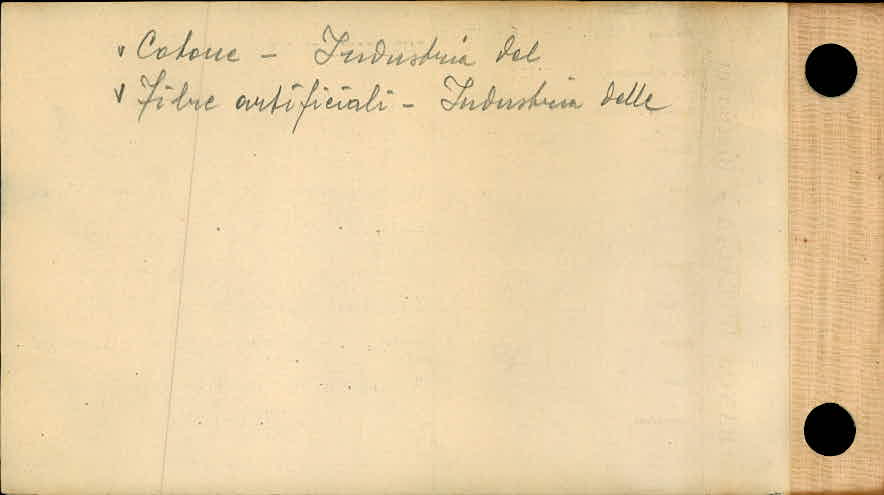 v Cotone - Industria del
v Fibre artificiali - Industria delle